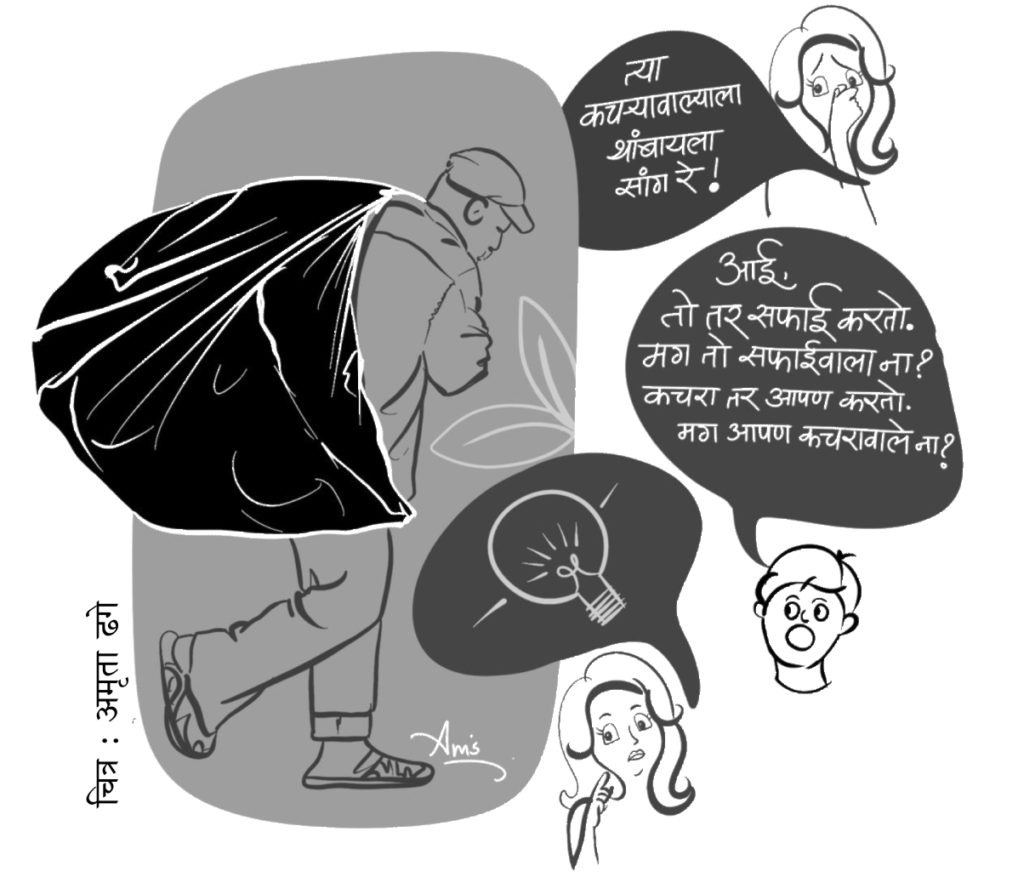 त्या
कचऱ्यावाल्याला
थांबायला
सांग रे!
आई,
तो तर सफाई करतो.
मग तो सफाईवाला ना?
कचरा तर आपण करतो.
मग आपण कचरावाले ना?
चित्र : अमृता ढगे
Am's